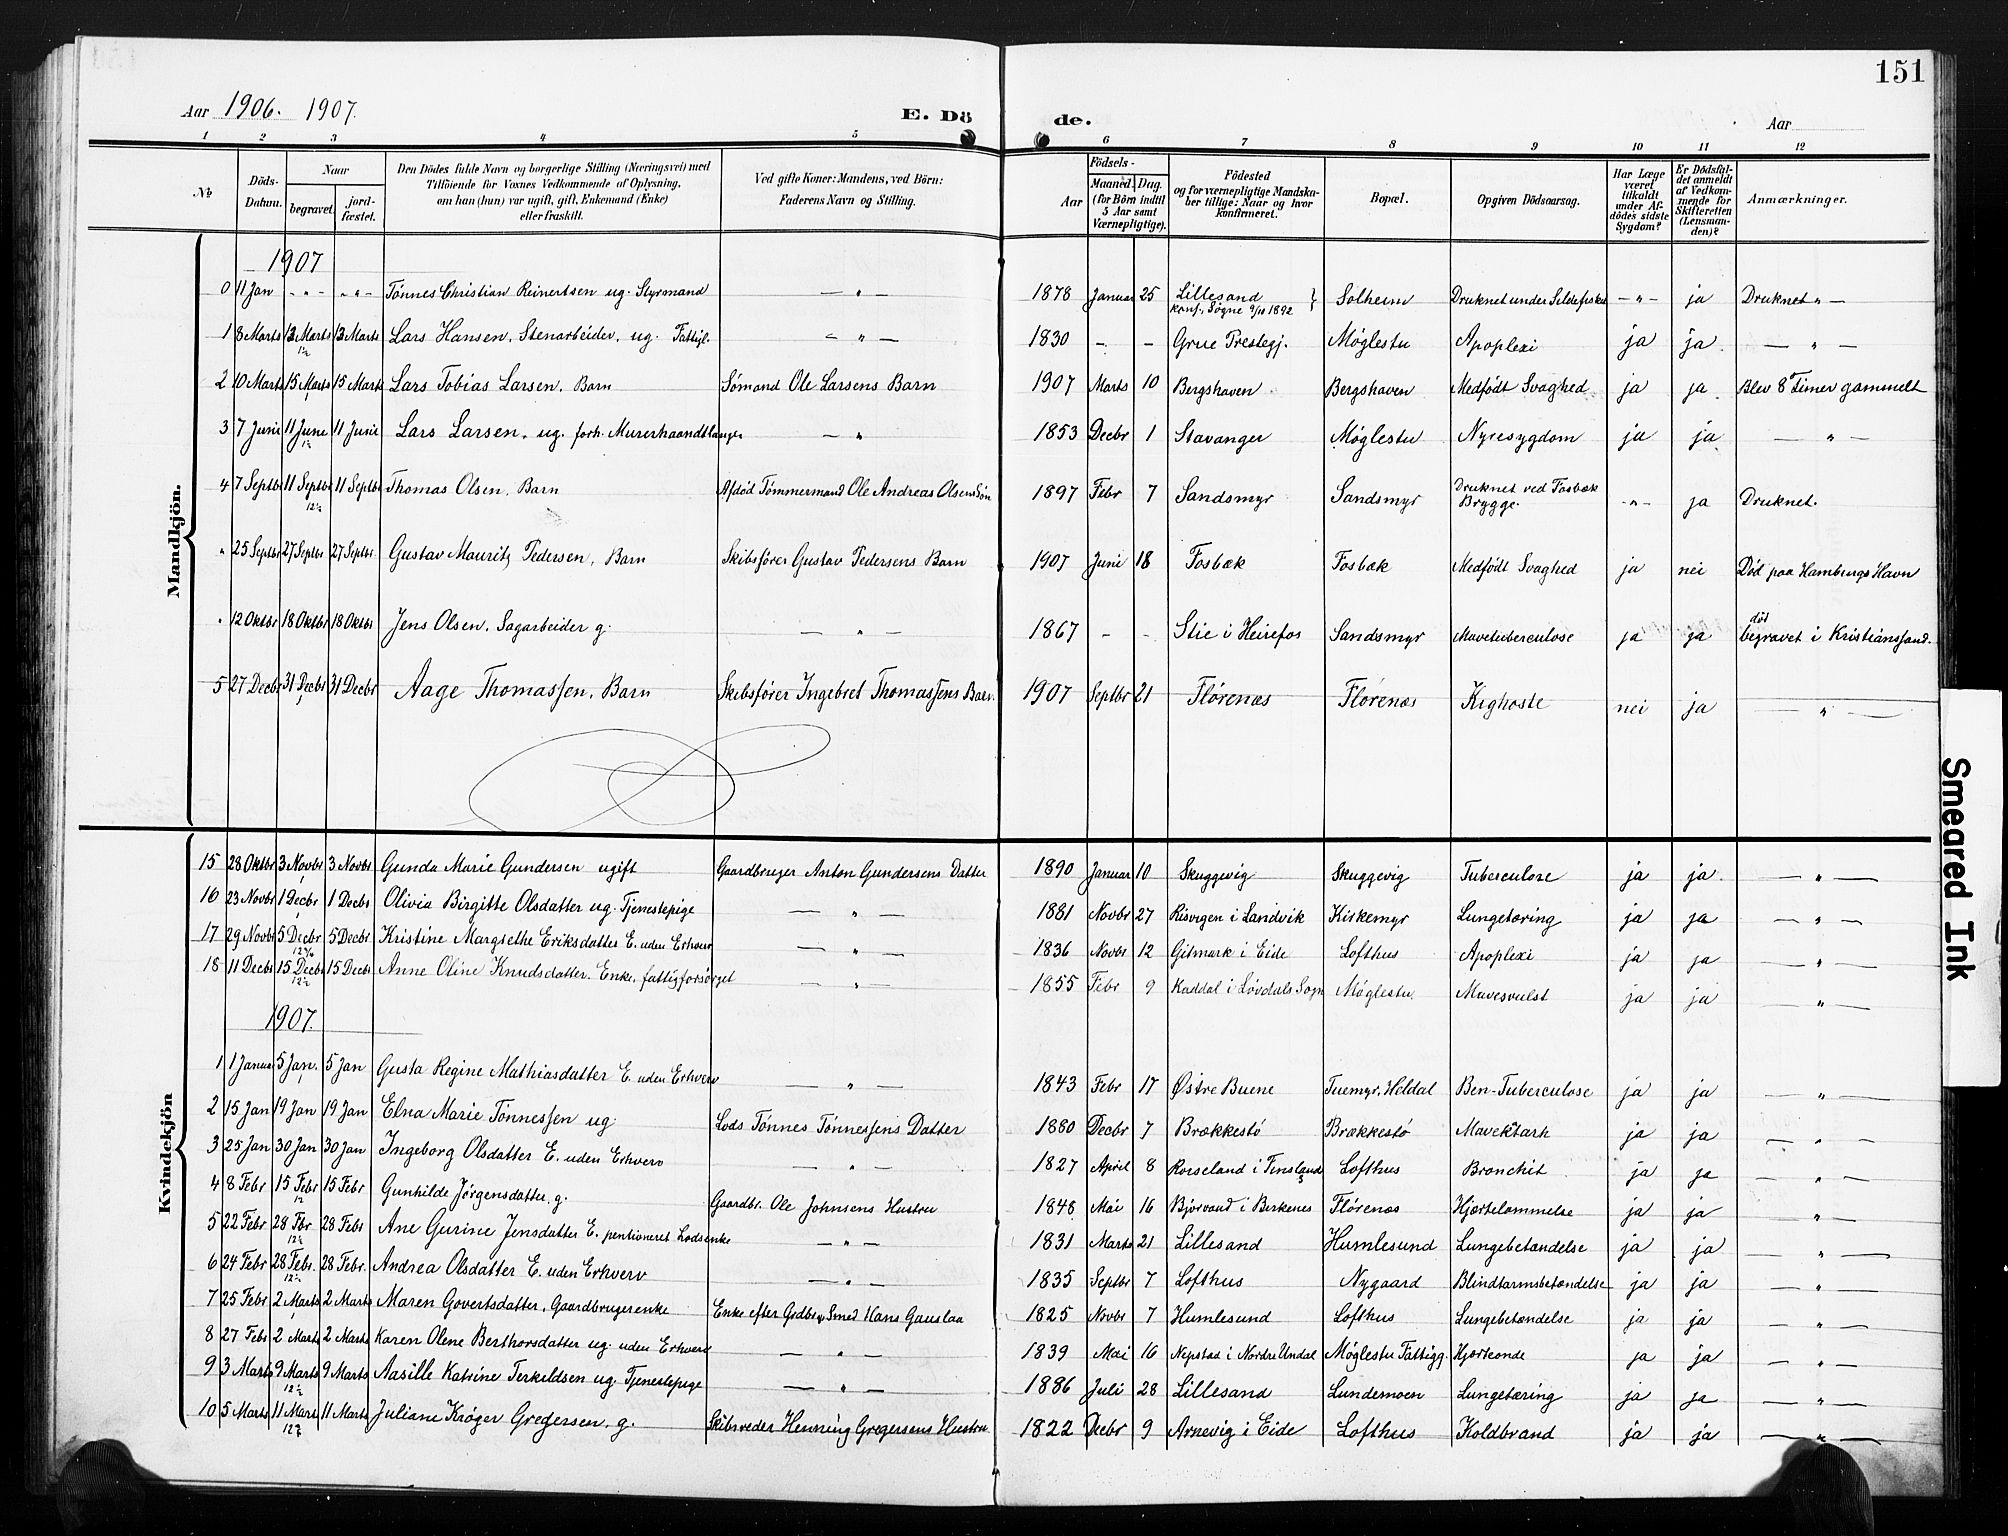 151
Aar 1906. 1907.
E. Dö de.
Aar
1 2 3 4 5 6 7 8 9 10 11 12
№ Döds-Datum. Naar begravet. jordfæstet. Den Dödes fulde Navn og borgerlige Stilling (Næringsvei) med Tilföiende for Voxnes Vedkommende af Oplysning, om han (hun) var ugift, gift, Enkemand (Enke) eller fraskilt. Ved gifte Koner: Mandens, ved Börn: Faderens Navn og Stilling. Födsels- Aar Maaned. Dag. (for Börn indtil 5 Aar samt Værnepligtige). Födested og for værnepligtige Mandskaber tillige: Naar og hvor konfirmeret. Bopæl. Opgiven Dödsaarsag. Har Læge været tilkaldt under Afdödes sidste Sygdom? Er Dödsfaldet anmeldt af Vedkommende for Skifteretten (Lensmanden)? Anmærkninger.
Mandkjön.
1907
0 11 Jan -"- -"- Tønnes Christian Reinertsen ug. Styrmand -"- 1878 Januar 25 Lillesand konf. Søgne 9/10 1892 } Solheim Druknet under Sildefiske -"- ja Druknet "-
1 8 Marts 13 Marts 12½ 13 Marts Lars Hansen, Stenarbeider, ug. Fattigl. -"- 1830 - - Grue Prestegj. Møglestu Apoplexi ja ja. -"-
2 10 Marts 15 Marts 15 Marts Lars Tobias Larsen, Barn Sømand Ole Larsens Barn 1907 Marts 10 Bergshaven Bergshaven Medfødt Svaghed ja ja Blev 8 Timer gammelt
3 7 Juni 11 June 12 11 Juni Lars Larsen, ug. forh. Murerhaandtlanger -"- 1853 Decbr 1 Stavanger Møglestu Nyresygdom ja ja -"-
4 7 Septbr 11 Septbr 12½ 11 Septbr Thomas Olsen, Barn Afdød Tømmermand Ole Andreas Olsens Søn 1897 Febr 7 Sandsmyr Sandsmyr Druknet ved Fosbæk Brygge. -"- ja Druknet.
" 25 Septbr 27 Septbr 27 Septbr. Gustav Mauritz Pedersen, Barn Skibsfører Gustav Pedersens Barn 1907 Juni 18 Fosbæk Fosbæk Medfødt Svaghed ja nei Død paa Hamburgs Havn
" 12 Oktbr 18 Oktbr 18 Oktbr Jens Olsen, Sagarbeider g. -"- 1867 - - Stie i Heirefos Sandsmyr Mavetuberculose ja ja død begravet i Kristianssand.
5 27 Decbr 31 Decbr 31 Decbr Aage Thomassen, Barn Skibsfører Ingebret Thomassens Barn. 1907 Septbr 21 Flørenæs Flørenæs Kighoste nei ja -"-
Kvindekjön
15 28 Oktbr 3 Novbr 3 Novbr Gunda Marie Gundersen ugift Gaardbruger Anton Gundersens Datter 1890 Januar 10 Skuggevig Skuggevig Tuberculose ja ja. -"-
16 23 Novbr 1 Decbr 1 Decbr Olivia Birgitte Olsdatter ug. Tjenestepige -"- 1881 Novbr 27 Risvigen i Landvik Kirkemyr Lungetæring ja ja -"-
17 29 Novbr 5 Decbr 5 Decbr Kristine Margrethe Eriksdatter E. uden Erhverv -"- 1836 Novbr 12 Gitmark i Eide Lofthus Apoplexi ja ja -"-
18 11 Decbr 15 Decbr 12½ 15 Decbr Anne Oline Knudsdatter. Enke, fattigforsørget -"- 1855 Febr 9 Kaddal i Løvdals Sogn Møglestu Mavesvulst ja ja -"-
1907.
1 1 Januar 5 Jan. 5 Jan Gusta Regine Mathiasdatter E. uden Erhverv -"- 1843 Febr 17 Østre Buene Tuemyr, Heldal Ben-Tuberculose ja ja -"-
2 15 Jan 19 Jan 19 Jan Elna Marie Tønnessen ug Lods Tønnes Tønnessens Datter 1880 Decbr 7 Brækkestø Brækkestø Mavektark ja ja -"-
3 25 Jan 30 Jan 30 Jan Ingeborg Olsdatter E. uden Erhverv -"- 1827 April 8 Rorseland i Finsland Lofthus Bronchit ja ja -"-
4 8 Febr 15 Febr 12 15 Febr Gunhilde Jørgensdatter g. Gaardbr. Ole Johnsens Hustru 1848 Mai 16 Bjorvand i Birkenes Flørenæs Hjertelammelse ja ja -"-
5 22 Febr 28 Fbr 12½ 28 Febr Ane Gurine Jensdatter E. pentioneret Lodsenke -"- 1831 Marts 21 Lillesand Humlesund Lungebetændelse ja ja -"-
6 24 Febr 28 Febr. 12½ 28 Febr. Andrea Olsdatter E. uden Erhverv -"- 1835 Septbr 7 Lofthus Nygaard Blindtarmsbetændelse ja ja -"-
7 25 Febr 2 Marts 2 Marts Maren Govertsdatter, Gaardbrugerenke Enke efter Grdbr. Smed Hans Gauslaa 1825 Novbr 7 Humlesund Lofthus Lungebetændelse ja ja -"-
8 27 Febr 2 Marts 2 Marts Karen Olene Berthorsdatter ug. uden Erhverv -"- 1839 Mai 16 Nepstad i Nordre Undal Møglestu Fattigg. Hjerteonde ja ja -"-
9 3 Marts 9 Marts 12½ 9 Marts Aasille Katrine Terkeldsen ug. Tjenestepige -"- 1886 Juli 28 Lillesand Lundemoen Lungetæring ja ja -"-
10 5 Marts 11 Mart 12½ 11 Marts Juliane Krøger Gregersen, g. Skibsreder Henning Gregersens Hustru 1822 Decbr 9 Arnevig i Eide Lofthus Koldbrand ja ja -"-
Smeared Ink